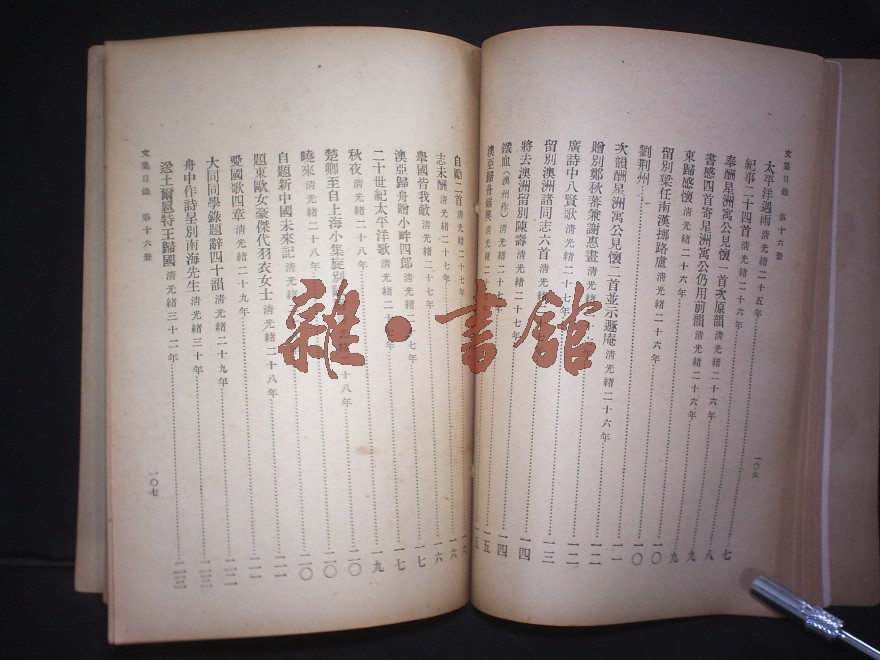 文集目錄 第十六册
太平洋遇雨 清光緒二十五年
紀事二十四首 清光緒二十六年 七
奉酬星洲寓公見懷一首次原韻 清光緒二十六年 八
書感四首寄星洲寓公仍用前韻 清光緒二十六年 九
東歸感懷 清光緒二十六年 九
留別梁任南漢挪路盧 清光緒二十六年 一〇
劉荊州 一〇
次韻酬星洲寓公見懷二首並示遯庵 清光緒二十六年 一一
贈別鄭秋蕃兼謝惠畫 清光緒 一二
廣詩中八賢歌 清光緒二十七年 一二
留別澳洲諸同志六首 清光緒 一三
將去澳洲留別陳壽 清光緒二十七年 一四
鐵血（澳州作）清光緒 七年 一四
澳亞歸舟雜興 一五
一〇六
自勵二首 清光緒二十七年 一六
志未酬 清光緒二十七年 一六
舉國皆我敵 清光緒二十七年 一七
澳亞歸舟贈小畔四郎 清光緒二 七年 一七
二十世紀太平洋歌 清光緒二 年 一九
秋夜 清光緒二十八年 二〇
楚卿至自上海小集旋別 十八年 二〇
曉來 清光緒二十八年 二〇
自題新中國未來記 清光緒 二一
題東歐女豪傑代羽衣女士 清光緒二十八年 二一
愛國歌四章 清光緒二十九年 二一
大同同學錄題辭四十韻 清光緒二十九年 二二
舟中作詩呈別南海先生 清光緒三十年 二三
送土爾扈特王歸國 清光緒三十二年 二三
文集目錄 第十六册
一〇七
雜·書館